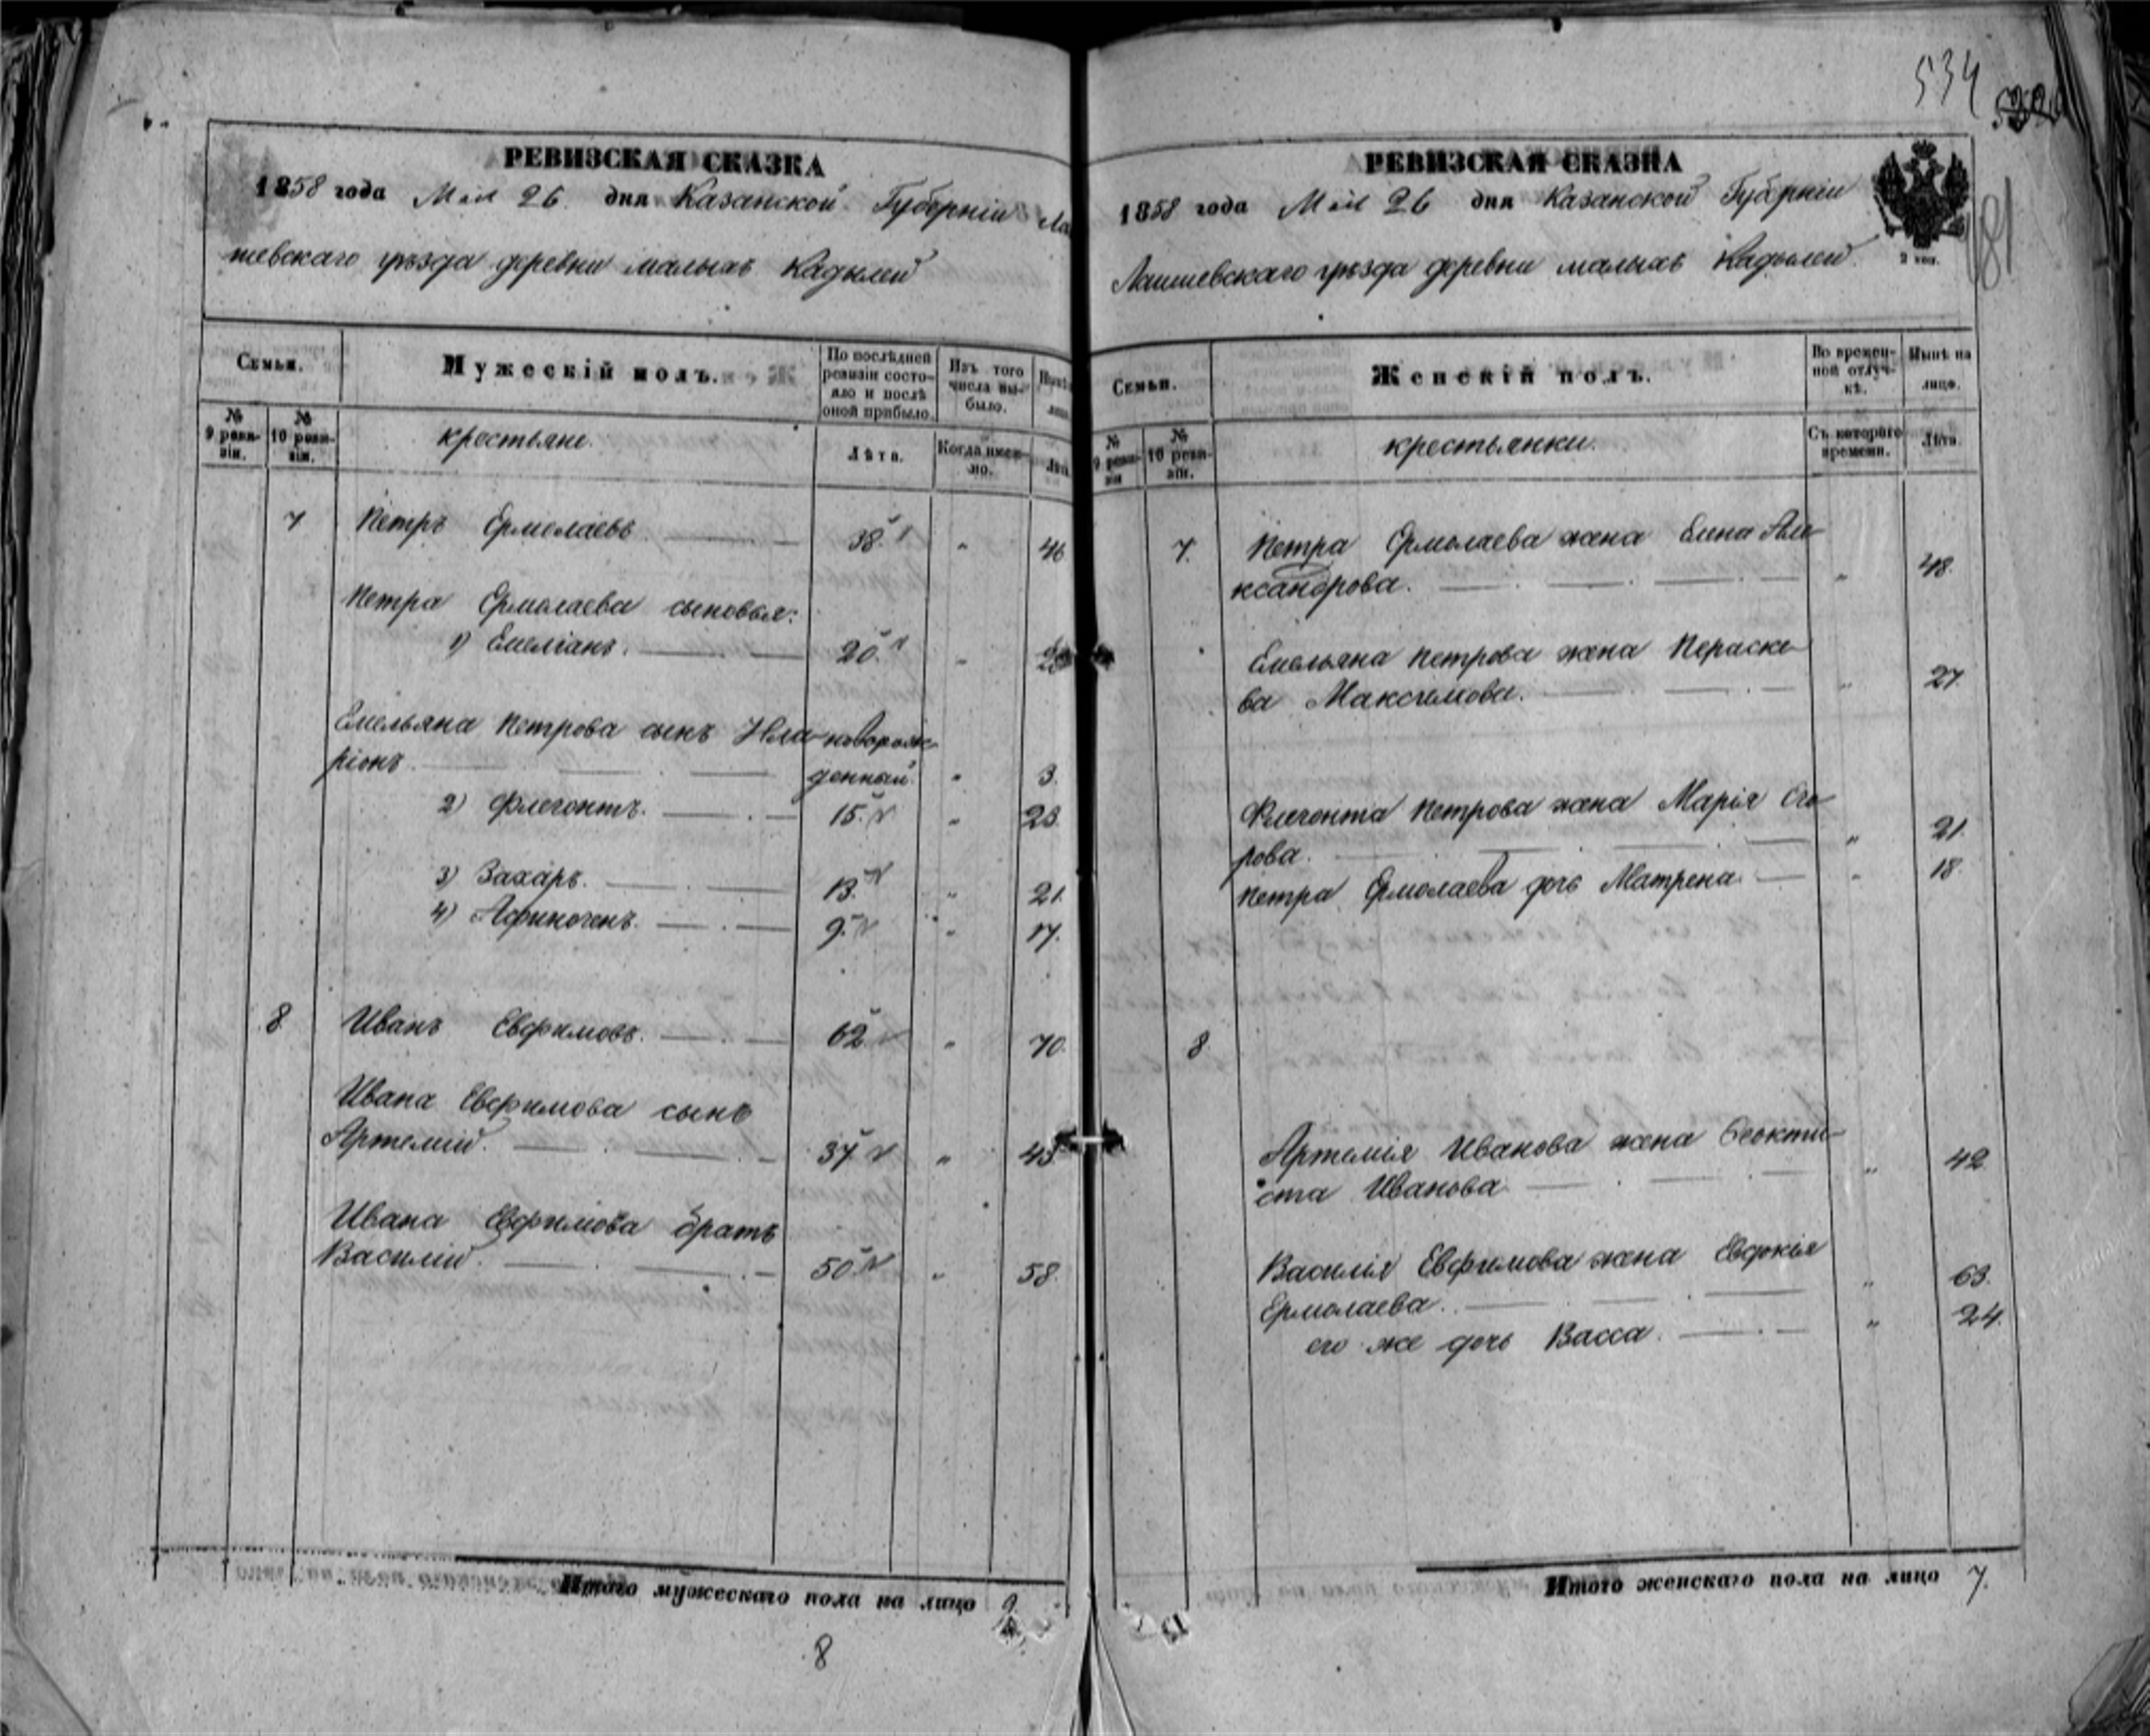 534
РЕВИЗСКАЯ СКАЗКА
1858 года Мая 26 дня Казанской Губерніи Ла
шевскаго уѣзда деревни малыхъ Кадылей
Семьи.
Мужескій полъ.
По послѣдней ревизіи состояло и послѣ оной прибыло.
Изъ того числа выбыло.
№ 9 ревизіи.
№ 10 ревизіи.
крестьяне.
Лѣта.
Когда именно.
7 Петръ Ермолаевъ 38 " 46
Петра Ермолаева сыновья:
1) Емеліанъ. 20. "
Емельяна Петрова сынъ Ила- новорож-
ріонъ денный. " 3.
2) Флегонтъ. 15. " 23.
3) Захаръ. 13. " 21.
4) Афиногенъ. 9. " 17.
8 Иванъ Евфимовъ. 62 " 70.
Ивана Евфимова сынъ
Артемій. 37 " 45
Ивана Евфимова братъ
Василій. 50 " 58.
Итого мужескаго пола на лицо 9.
8
РЕВИЗСКАЯ СКАЗКА
1858 года Мая 26 дня Казанской Губерніи
Лаишевскаго уѣзда деревни малыхъ Кадылей.
2 коп.
181
Семьи.
Женскій полъ.
Во временной отлучкѣ.
Нынѣ на лицо.
№ 9 ревизіи
№ 10 ревизіи.
крестьянки.
Съ котораго времени.
Лѣта.
7. Петра Ермолаева жена Елена Але-
ксандрова. " 48.
Емельяна Петрова жена Параске-
ва Максимова. " 27.
Флегонта Петрова жена Марія Его-
рова. " 21.
Петра Ермолаева дочь Матрена " 18.
8
Артемія Иванова жена Феокти-
ста Иванова " 42
Василія Евфимова жена Евдокія
Ермолаева. " 63.
его же дочь Васса. " 24.
Итого женскаго пола на лицо 7.